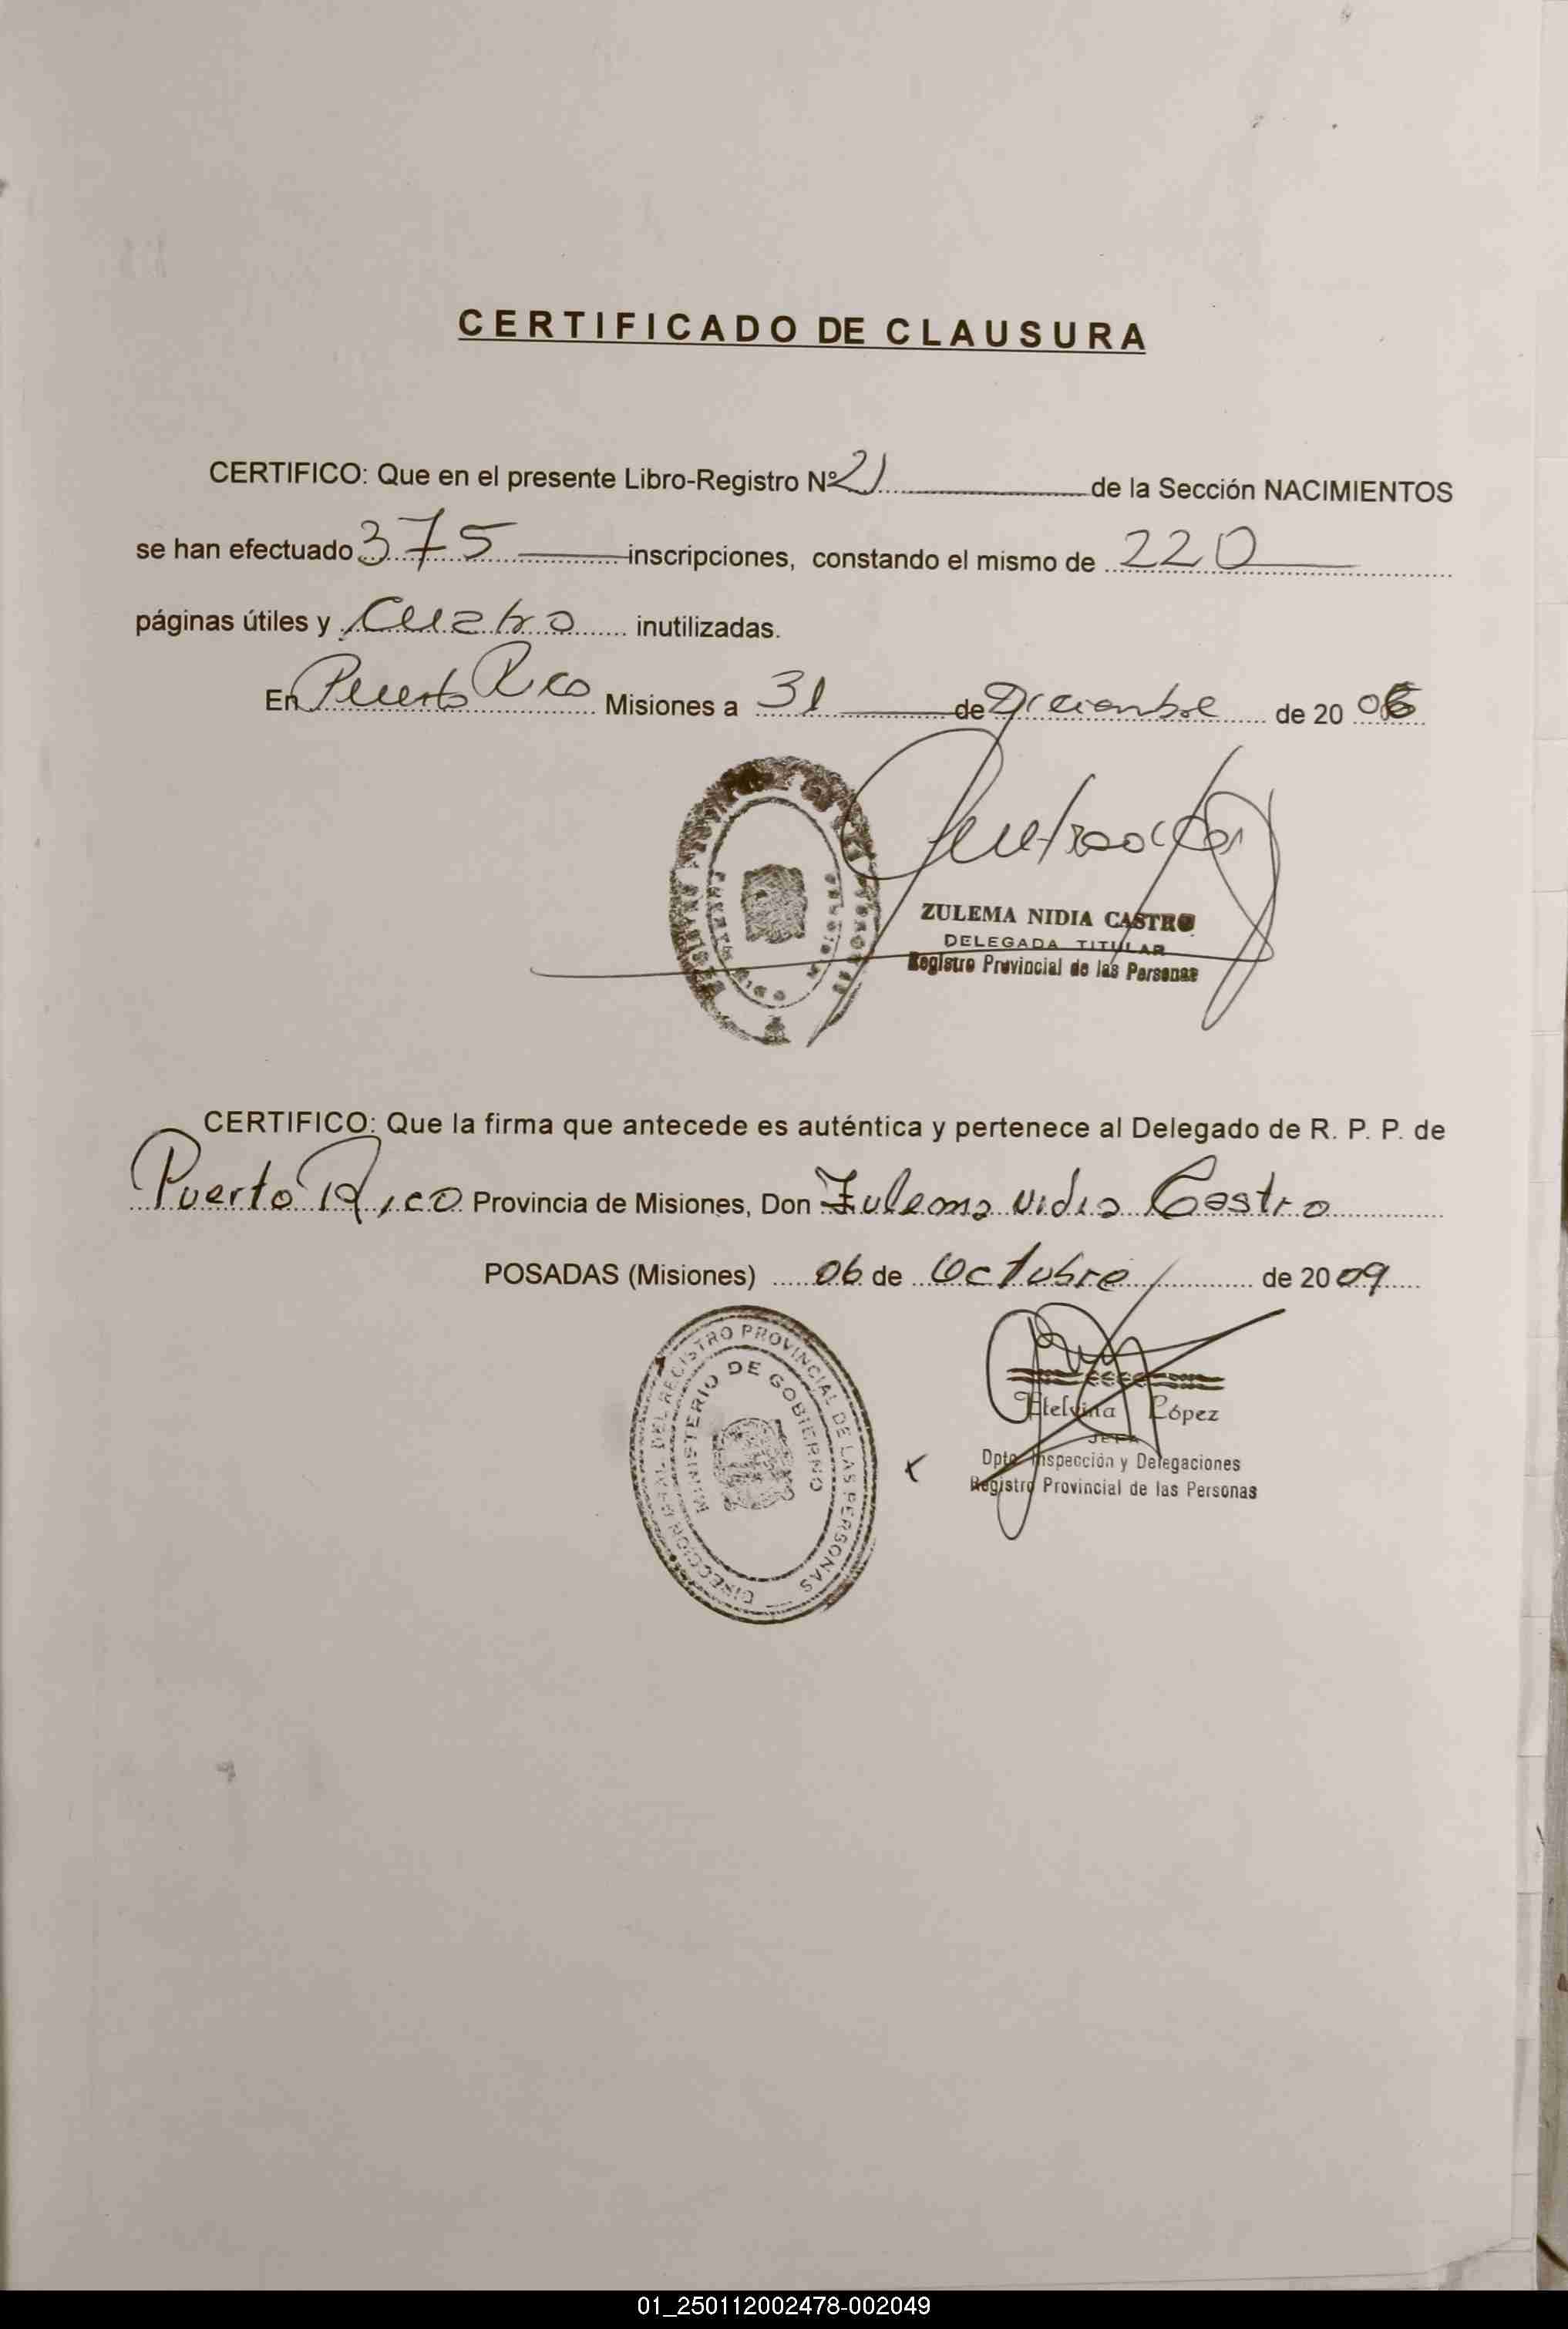 CERTIFICADO DE CLAUSURA
CERTIFICO: Que en el presente Libro-Registro Nº 21 de la Sección NACIMIENTOS
se han efectuado 375 inscripciones, constando el mismo de 220
páginas útiles y Cuatro inutilizadas.
En Puerto Rico Misiones a 31 de Diciembre de 20
ZULEMA NIDIA CASTRO
DELEGADA TITULAR
Registro Provincial de las Personas
CERTIFICO: Que la firma que antecede es auténtica y pertenece al Delegado de R. P. P. de
Puerto Rico Provincia de Misiones, Don Zulema Nidia Castro
POSADAS (Misiones) 06 de Octubre de 2009
DIRECCION GRAL. DEL REGISTRO PROVINCIAL DE LAS PERSONAS
MINISTERIO DE GOBIERNO
Etelvina López
JEFA
Dpto. Inspección y Delegaciones
Registro Provincial de las Personas
01_250112002478-002049